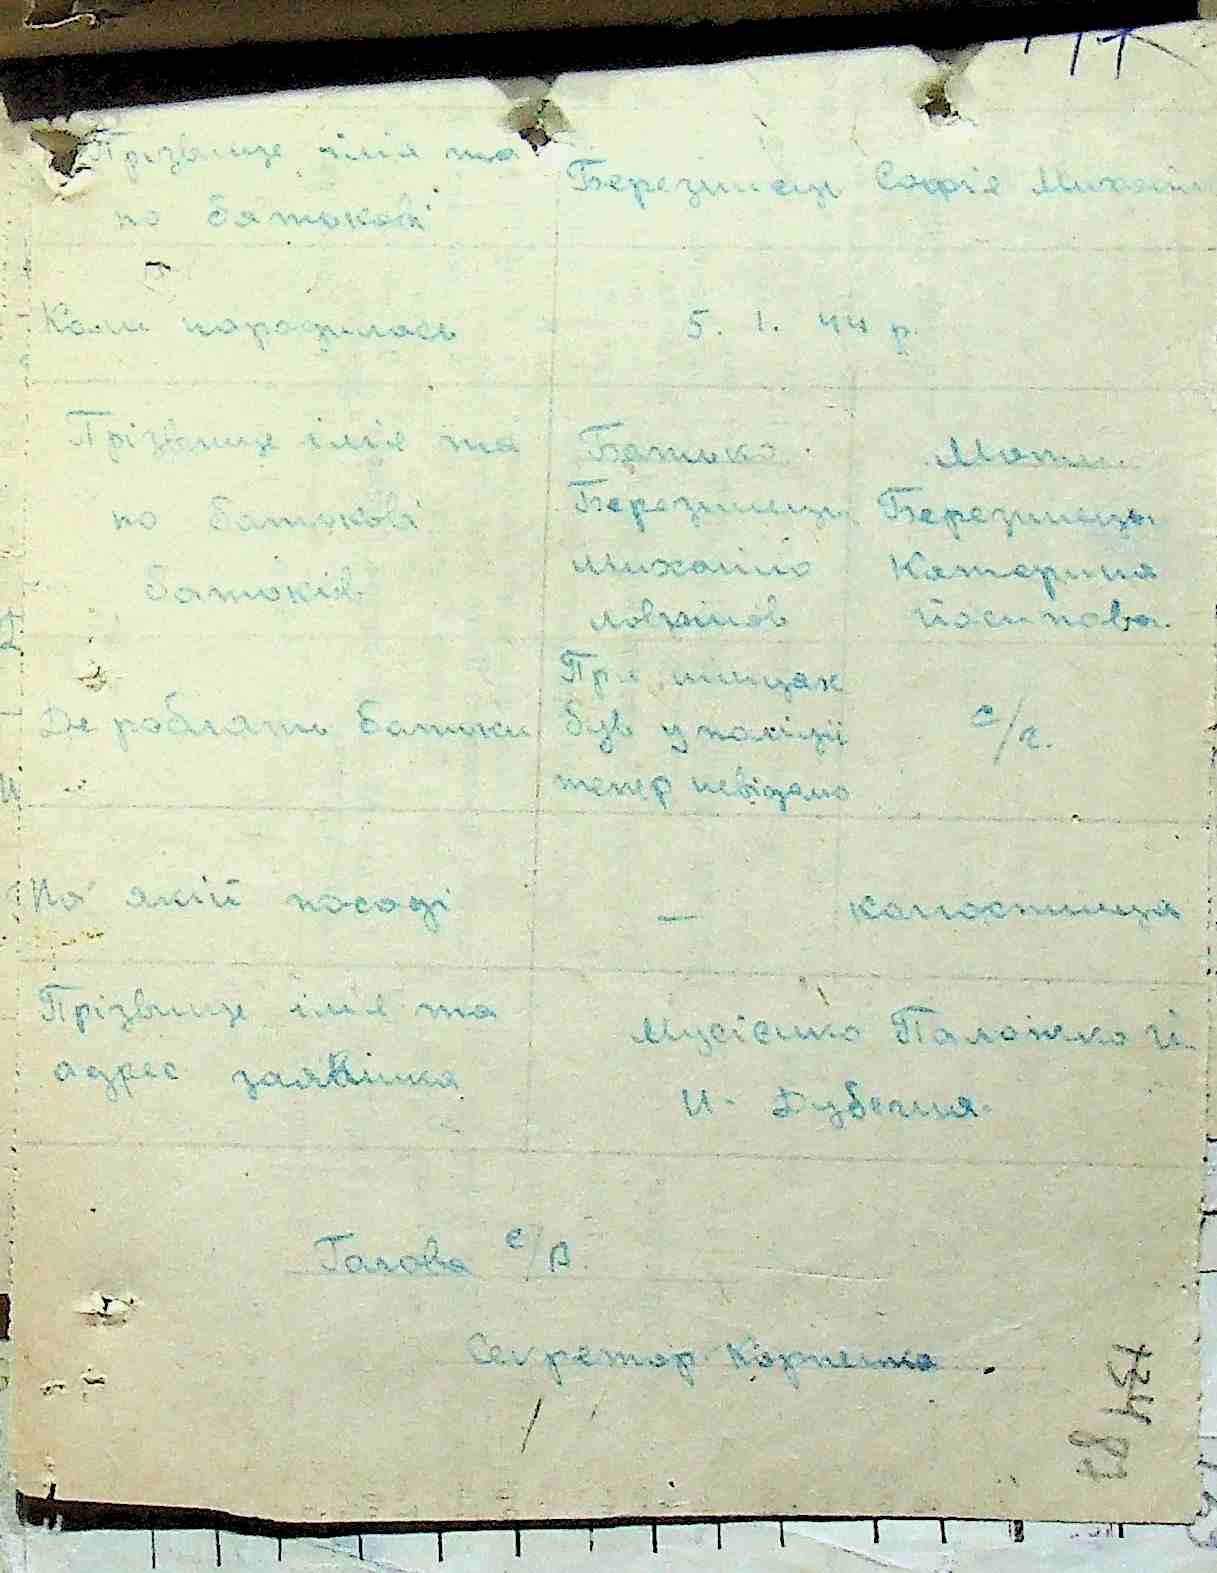 Прізвище імія та
по батькові
Березинець Софія Михайл
Коли народилась
5. 1. 44 р.
Прізвище імія та
по батькові
батьків
Батько
Березинець
Михайло
Мати
Березинець
Катерина
Йосипова.
Де роблять батьки
При німцях
був у поліції
тепер невідомо
с/г.
На якій посаді
—
колгоспниця
Прізвище імія та
адрес заявника
Мусієнко Палажка Й.
Н- Дубечня.
Голова с/в.
Секретар Корненко